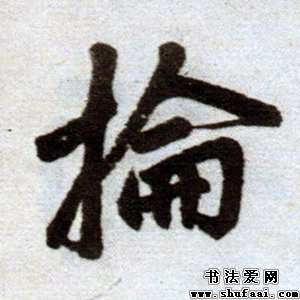 掄
书法爱网
www.shufaai.com